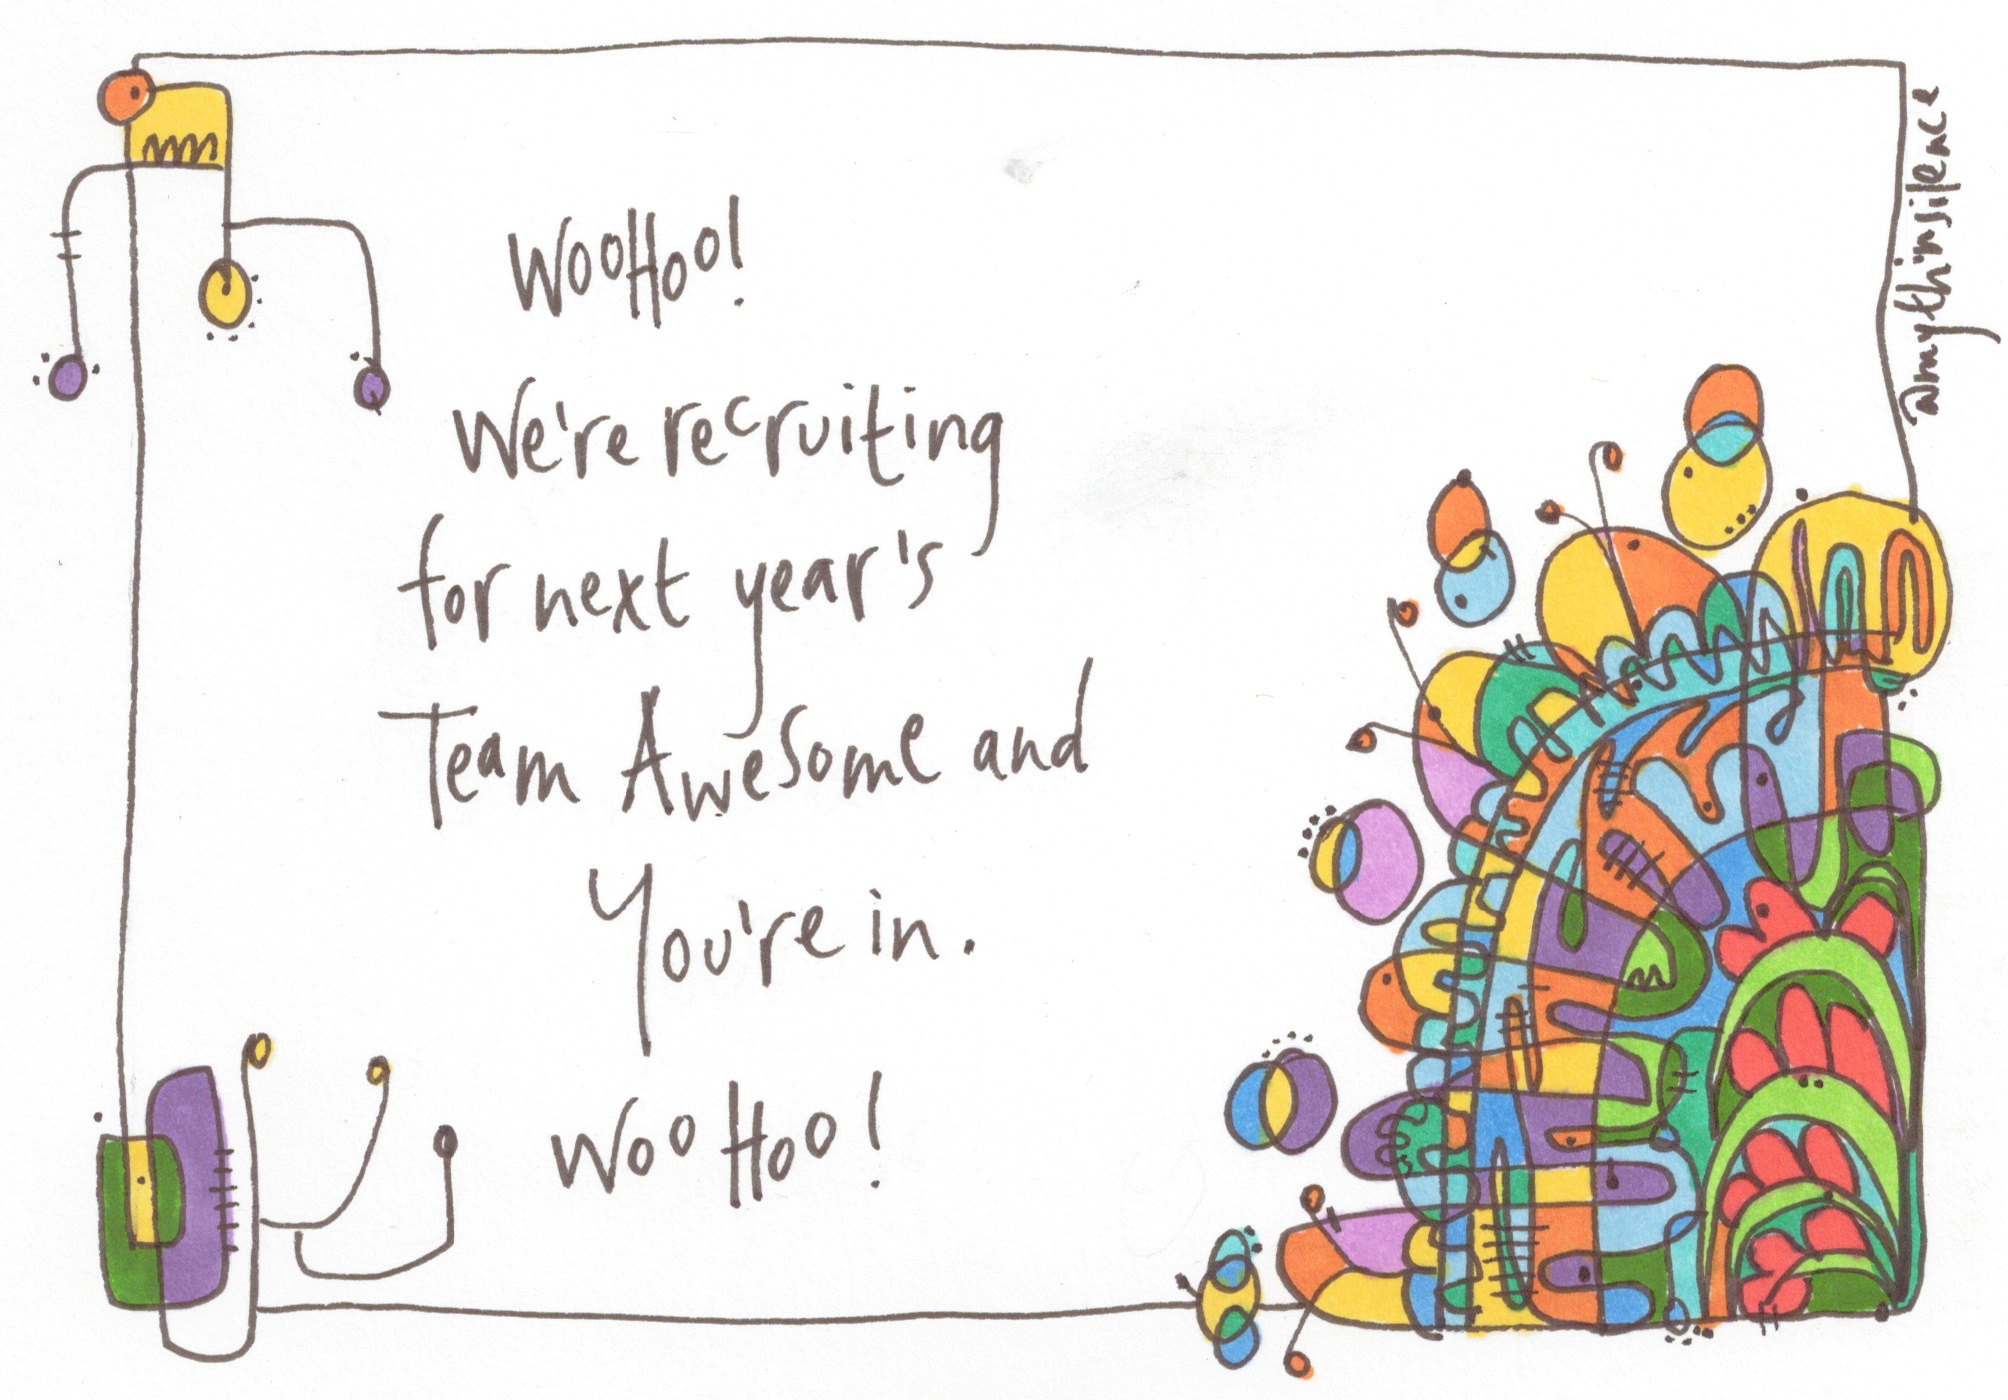 WooHoo!
We're recruiting
for next year's
Team Awesome and
You're in.
Woo Hoo!
amythinsilence